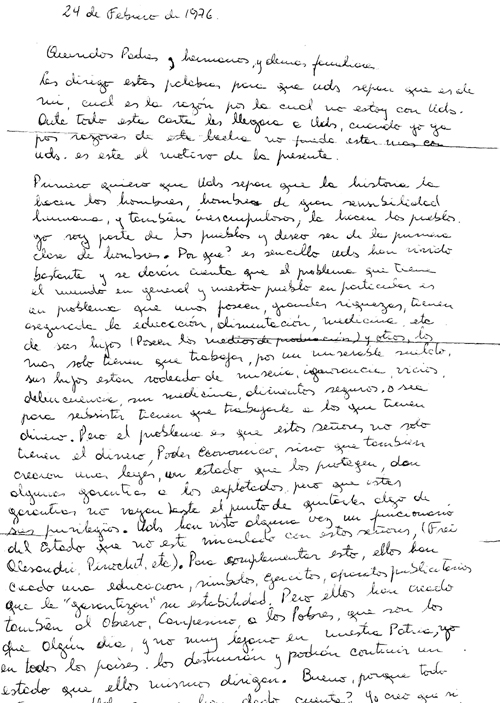 24 de Febrero de 1976.
Queridos Padres y hermanos, y demas familiares
Les dirigo estas palabras para que uds sepan que es de
mi, cual es la razón por la cual no estoy con Uds.
Ante todo esta carta les llegara a Uds, cuando yo ya
por razones de esta lucha no pueda estar mas con
uds. es este el motivo de la presente.
Primero quiero que Uds sepan que la historia la
hacen los hombres, hombres de gran sensibilidad
humana, y también inescrupulosos, la hacen los pueblos.
yo soy parte de los pueblos y deseo ser de la primera
clase de hombres. Por que? es sencillo uds han vivido
bastante y se darán cuenta que el problema que tiene
el mundo en general y nuestro pueblo en particular es
un problema que unos poseen, grandes riquezas, tienen
asegurada la educación, alimentación, medicina etc
de sus hijos (Poseen los medios de producción) y otros, los
mas solo tienen que trabajar, por un miserable sueldo,
sus hijos estan rodeado de miseria, ignorancia, vicios,
delincuencia, sin medicina, alimentos seguros, o sea
para subsistir tienen que trabajarle a los que tienen
dinero. Pero el problema es que estos señores no solo
tienen el dinero, Poder Economico, sino que también
crearon unas leyes, un estado que los protegen, dan
algunas garantias a los explotados, pero que estas
garantias no vayan hasta el punto de quitarles algo de
sus privilegios. Uds han visto alguna vez un funcionario
del Estado que no esté vinculado con estos señores, (Frei
Alesandri, Pinochet, etc). Para complementar esto, ellos han
creado una educacion, simbolos, Ejercitos, aparatos publicitarios
que le "garantizan" su estabilidad. Pero ellos han creado
también al Obrero, Campesino, a los Pobres, que son los
que algún dia, y no muy lejano en nuestra Patria, yo
en todos los paises. los destruirán y podrán contruir un
estado que ellos mismos dirigan. Bueno, porque todo
cuenta? Yo creo que si